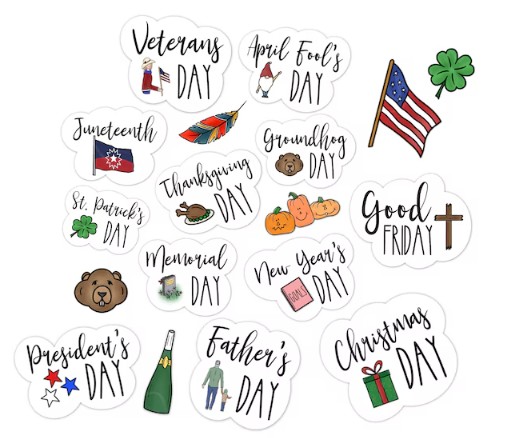 Veterans
DAY
April Fool's
DAY
Juneteenth
Groundhog
DAY
Thanksgiving
DAY
St. Patrick's
DAY
Good
FRIDAY
Memorial
DAY
New Year's
GOALS
DAY
President's
DAY
Father's
DAY
Christmas
DAY